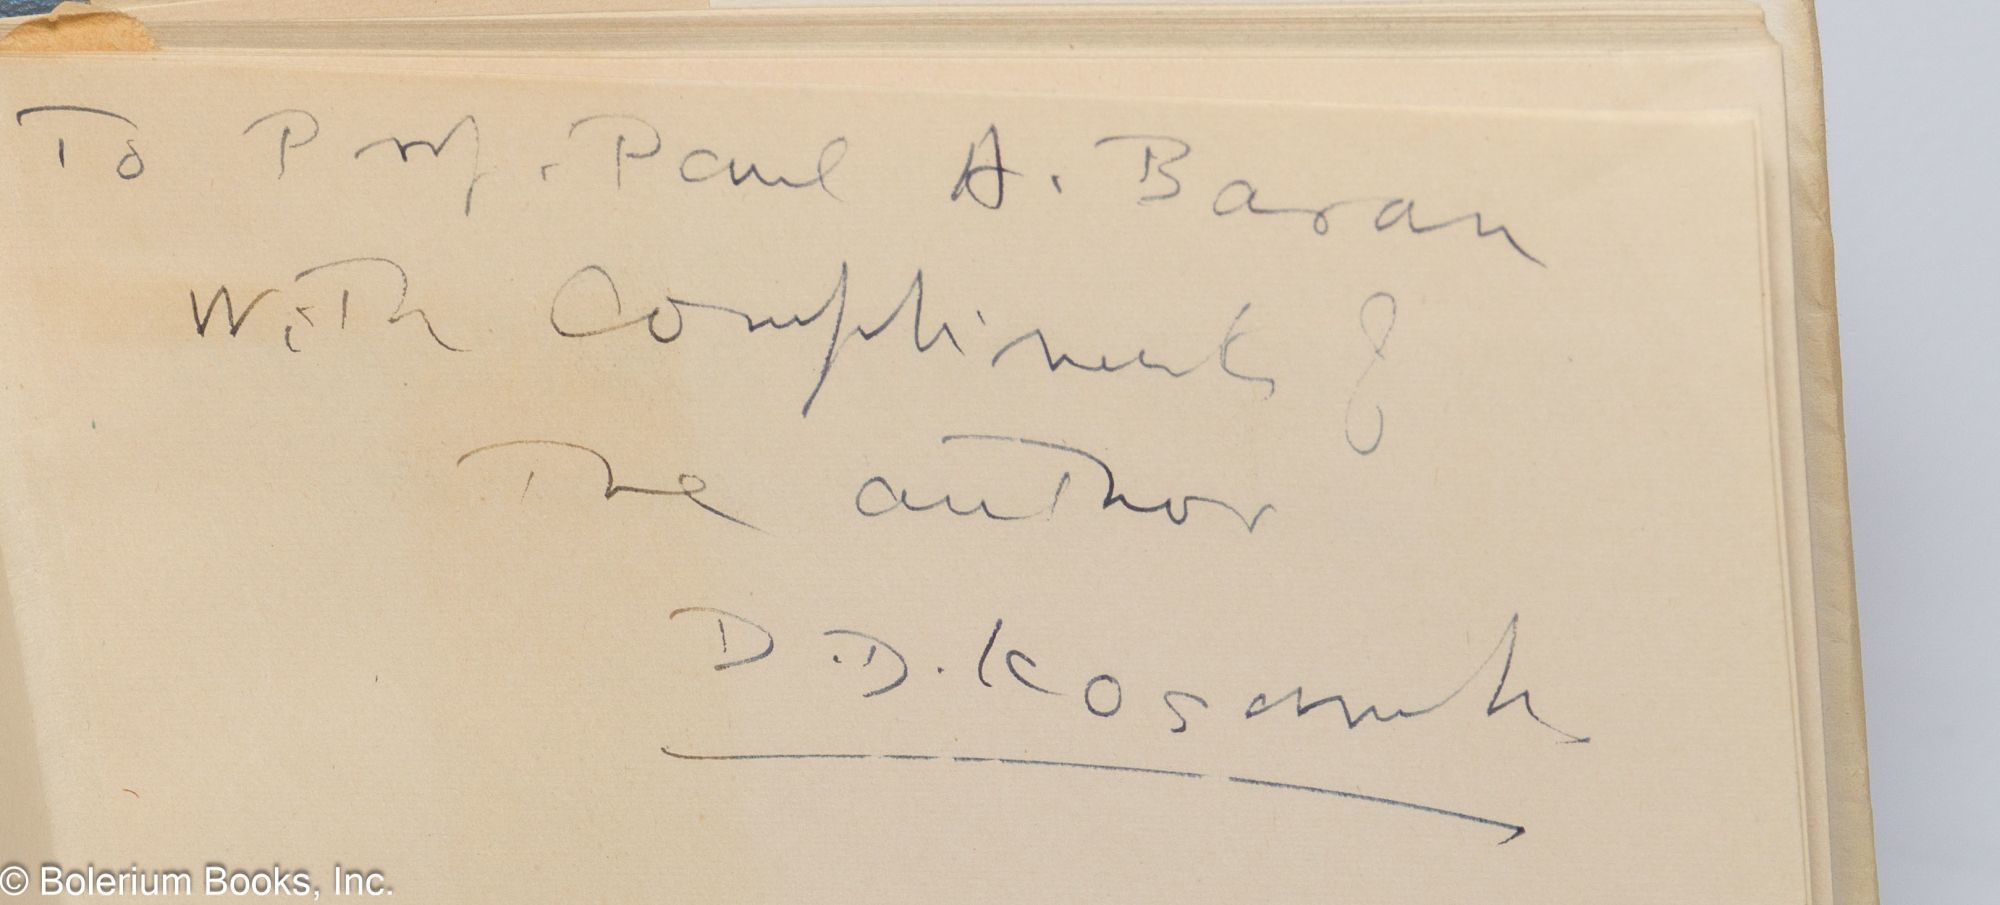 To Prof. Paul A. Baran
With Compliments of
The author
D.D. Kosambi
© Bolerium Books, Inc.